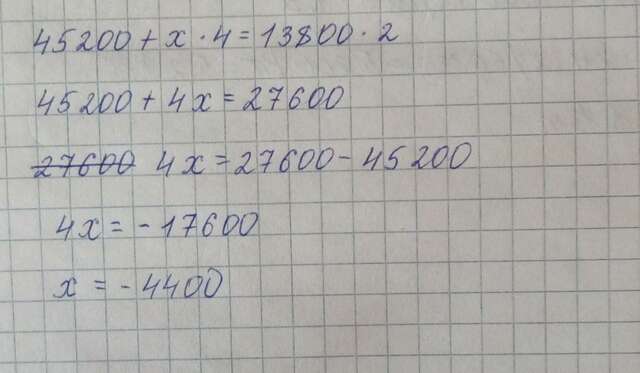 45200 + x · 4 = 13800 · 2
45200 + 4x = 27600
27600 4x = 27600 - 45200
4x = - 17600
x = - 4400